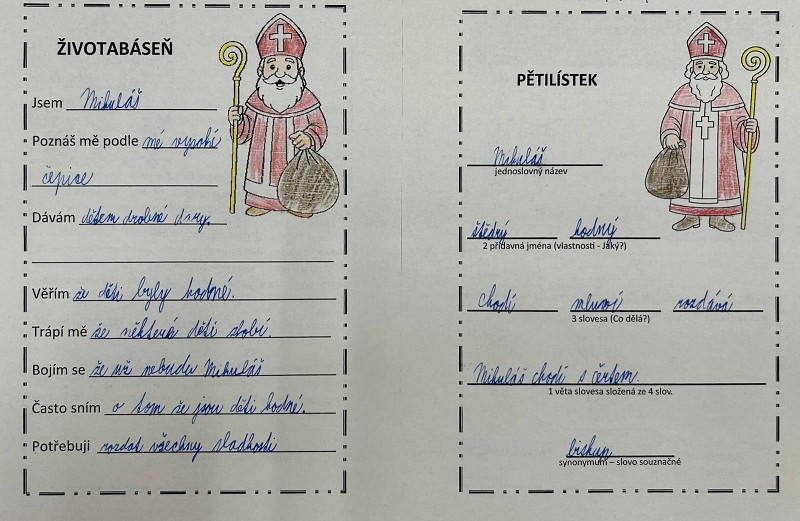 ŽIVOTABÁSEŇ
Jsem Mikuláš
Poznáš mě podle mé vysoké
čepice
Dávám dětem drobné dary.
Věřím že děti byly hodné.
Trápí mě že některé děti zlobí.
Bojím se že už nebudu Mikuláš
Často sním o tom že jsou děti hodné.
Potřebuji rozdat všechny sladkosti
PĚTILÍSTEK
Mikuláš
jednoslovný název
štědrý hodný
2 přídavná jména (vlastnosti - Jaký?)
chodí mluví rozdává
3 slovesa (Co dělá?)
Mikuláš chodí s čertem.
1 věta slovesa složená ze 4 slov.
biskup
synonymum – slovo souznačné